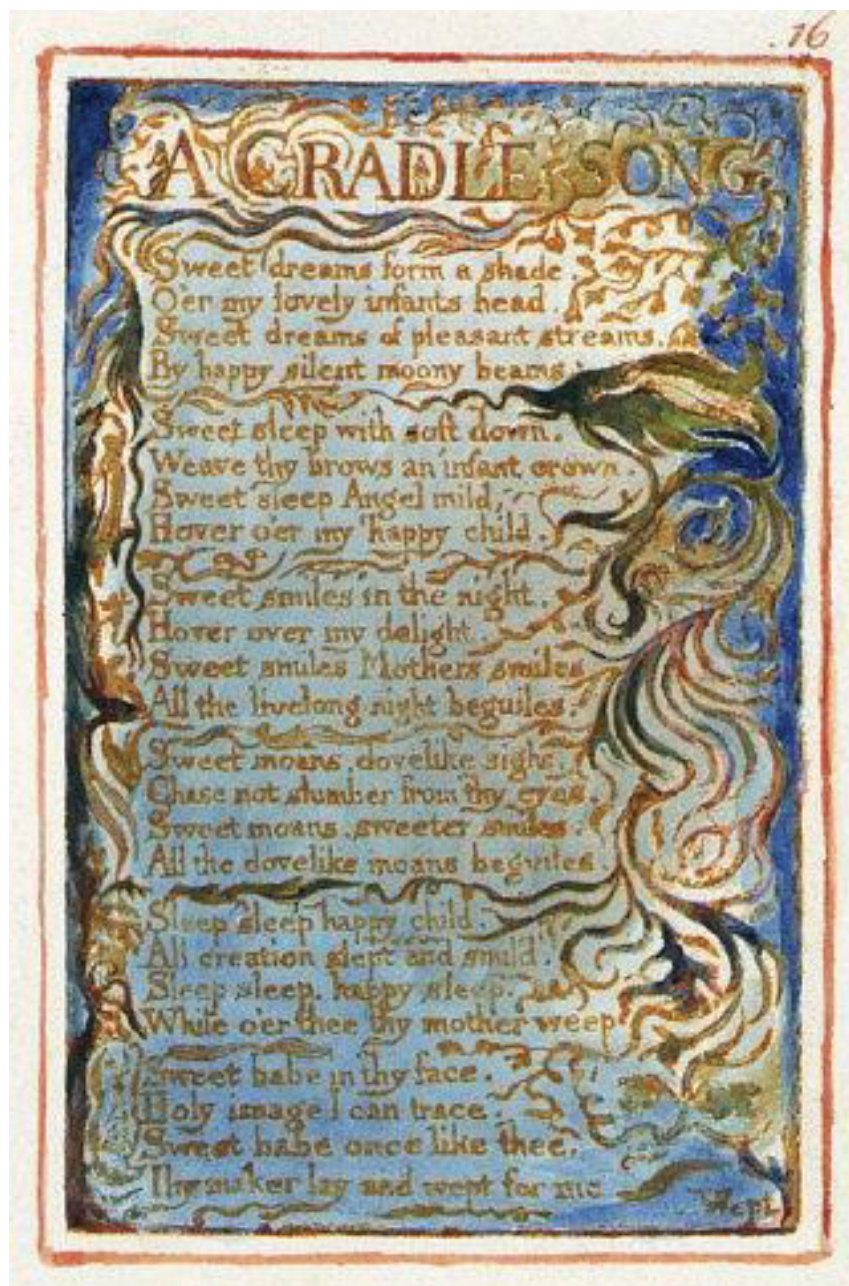 .16
A CRADLE SONG
Sweet dreams form a shade.
O'er my lovely infants head.
Sweet dreams of pleasant streams.
By happy silent moony beams.
Sweet sleep with soft down.
Weave thy brows an infant crown.
Sweet sleep Angel mild,
Hover o'er my happy child.
Sweet smiles in the night.
Hover over my delight.
Sweet smiles Mothers smiles
All the livelong night beguiles.
Sweet moans, dovelike sighs,
Chase not slumber from thy eyes.
Sweet moans, sweeter smiles.
All the dovelike moans beguiles.
Sleep sleep happy child.
All creation slept and smil'd.
Sleep sleep, happy sleep,
While o'er thee thy mother weep
Sweet babe in thy face,
Holy image I can trace.
Sweet babe once like thee,
Thy maker lay and wept for me
Wept